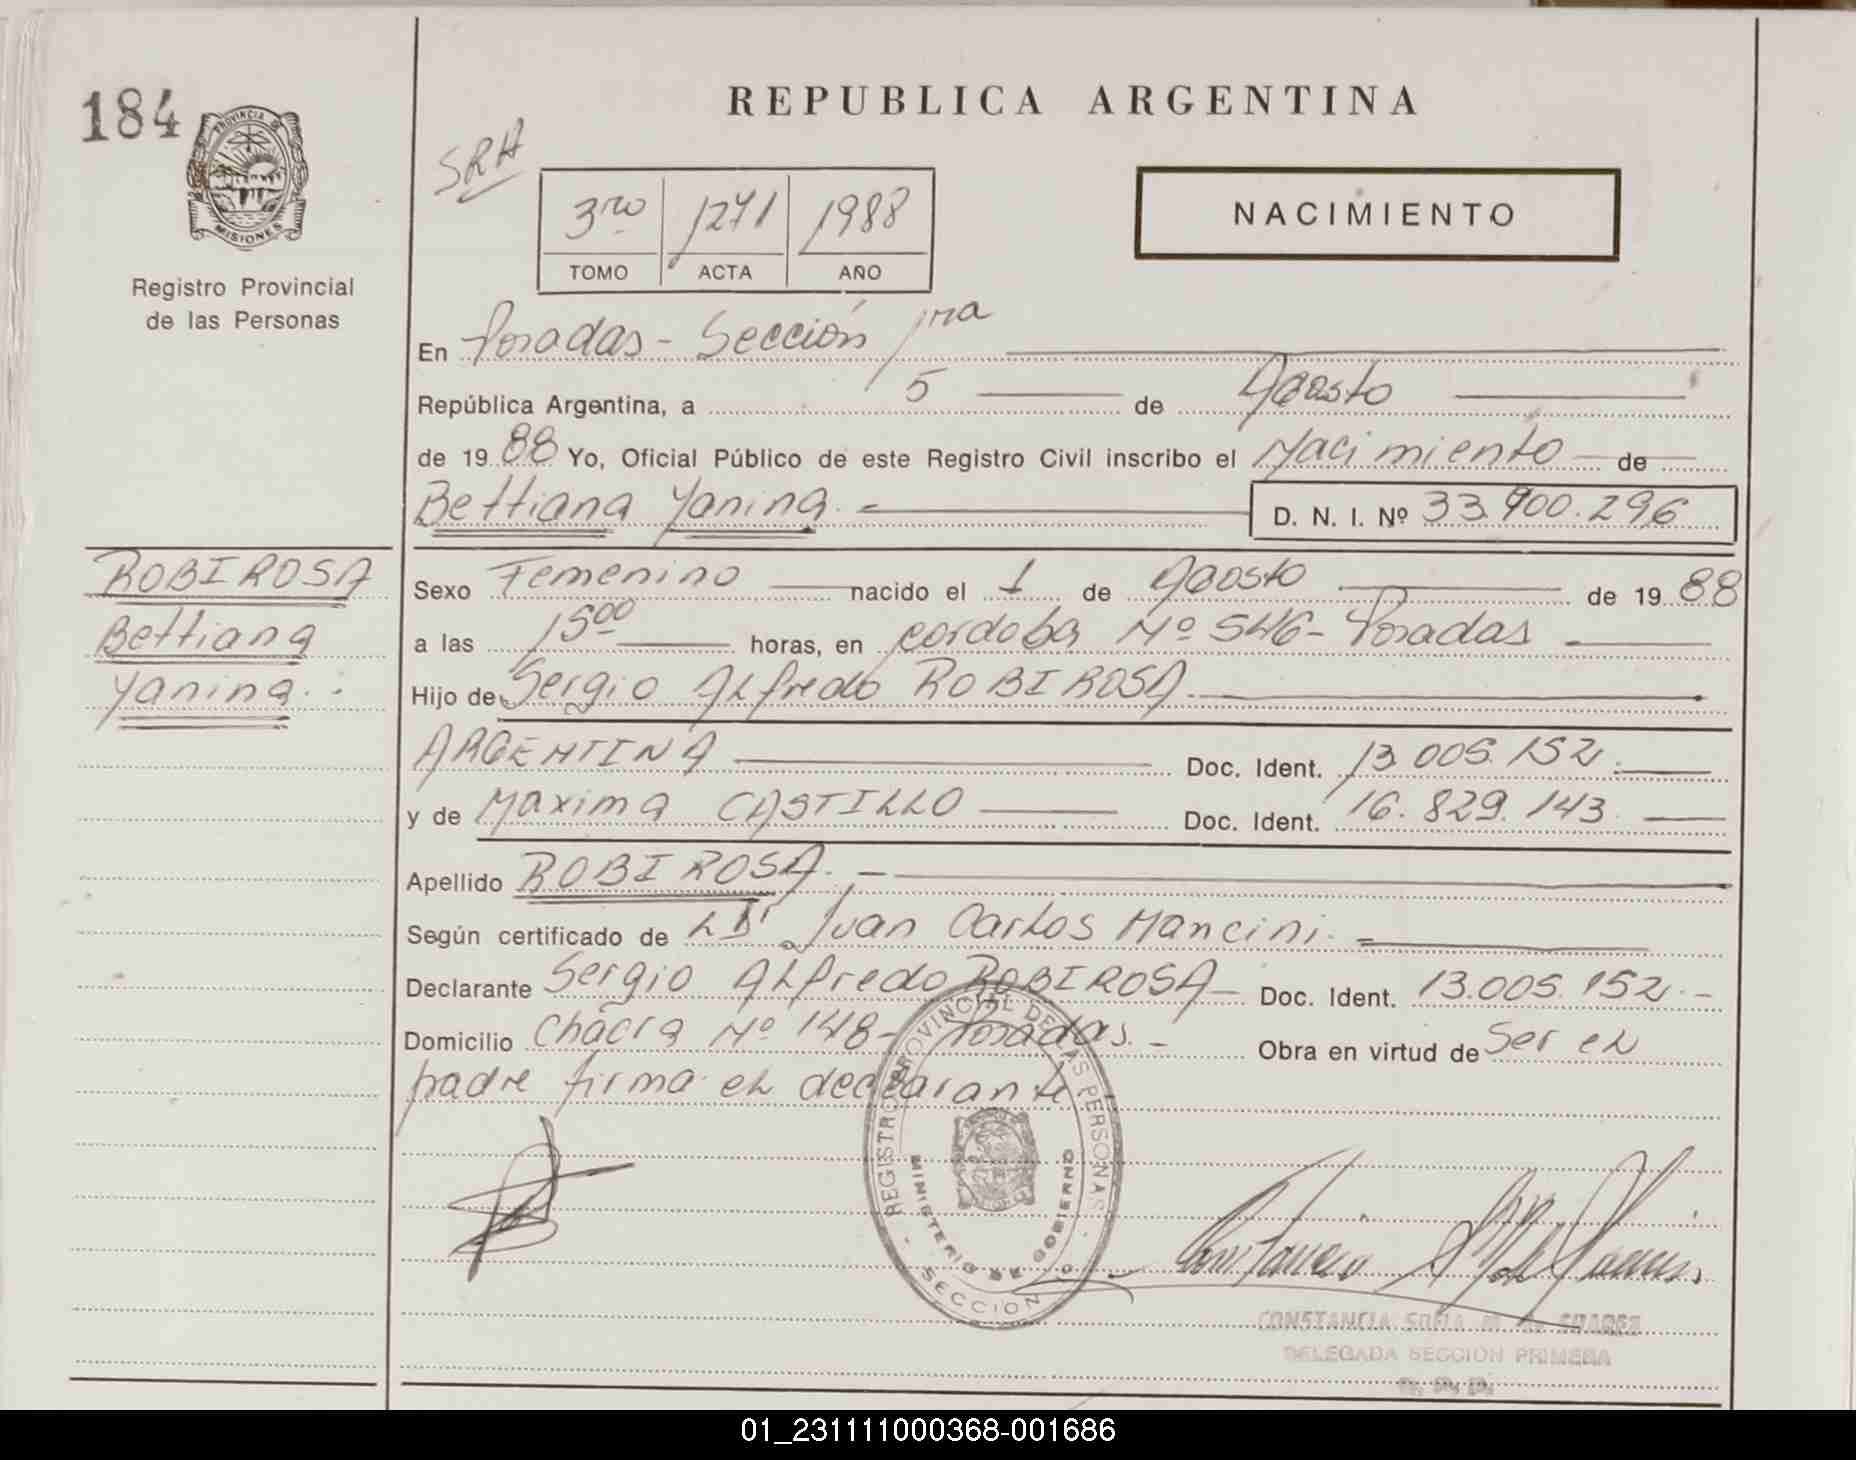 184
PROVINCIA DE
MISIONES
Registro Provincial
de las Personas
REPUBLICA ARGENTINA
SRA
3ro 1271 1988
TOMO ACTA AÑO
NACIMIENTO
En Posadas - Sección 1ra
República Argentina, a 5 de Agosto
de 1988 Yo, Oficial Público de este Registro Civil inscribo el Nacimiento de
Bettiana Yanina.- D. N. I. Nº 33.900.296
ROBIROSA
Bettiana
Yanina.-
Sexo Femenino nacido el 1 de Agosto de 1988
a las 15oo horas, en Cordoba Nº 546- Posadas
Hijo de Sergio Alfredo ROBIROSA
ARGENTINA Doc. Ident. 13.005.152.
y de Maxima CASTILLO Doc. Ident. 16.829.143.
Apellido ROBIROSA.-
Según certificado de Juan Carlos Mancini.
Declarante Sergio Alfredo ROBIROSA- Doc. Ident. 13.005.152.-
Domicilio Chacra Nº 148- Posadas.- Obra en virtud de Ser el
padre firma el declarante.-
REGISTRO PROVINCIAL DE LAS PERSONAS
MINISTERIO DE GOBIERNO
SECCION
CONSTANCIA SOFIA M. de SUAREZ
DELEGADA SECCION PRIMERA
R. P. P.
01_231111000368-001686